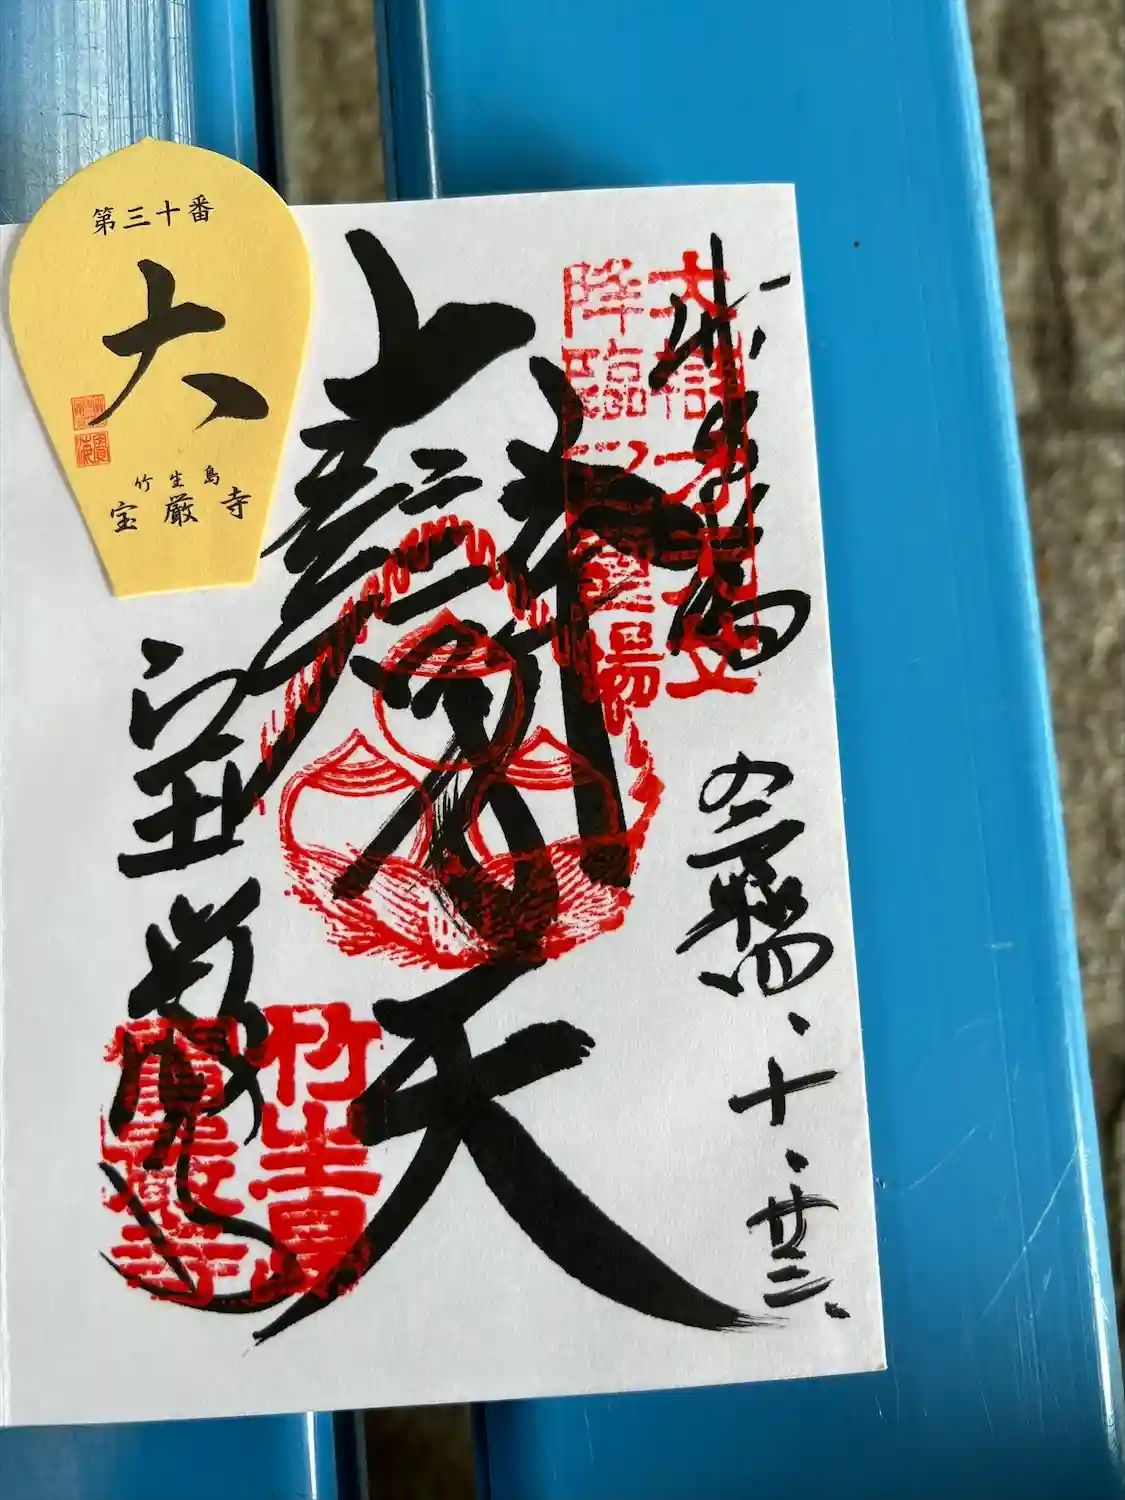 第三十番
大
竹生島
宝厳寺
大辯才天女
降臨之霊場
竹生島
令和
十
廿三
大辯才天
宝厳寺
竹生島
寶嚴寺